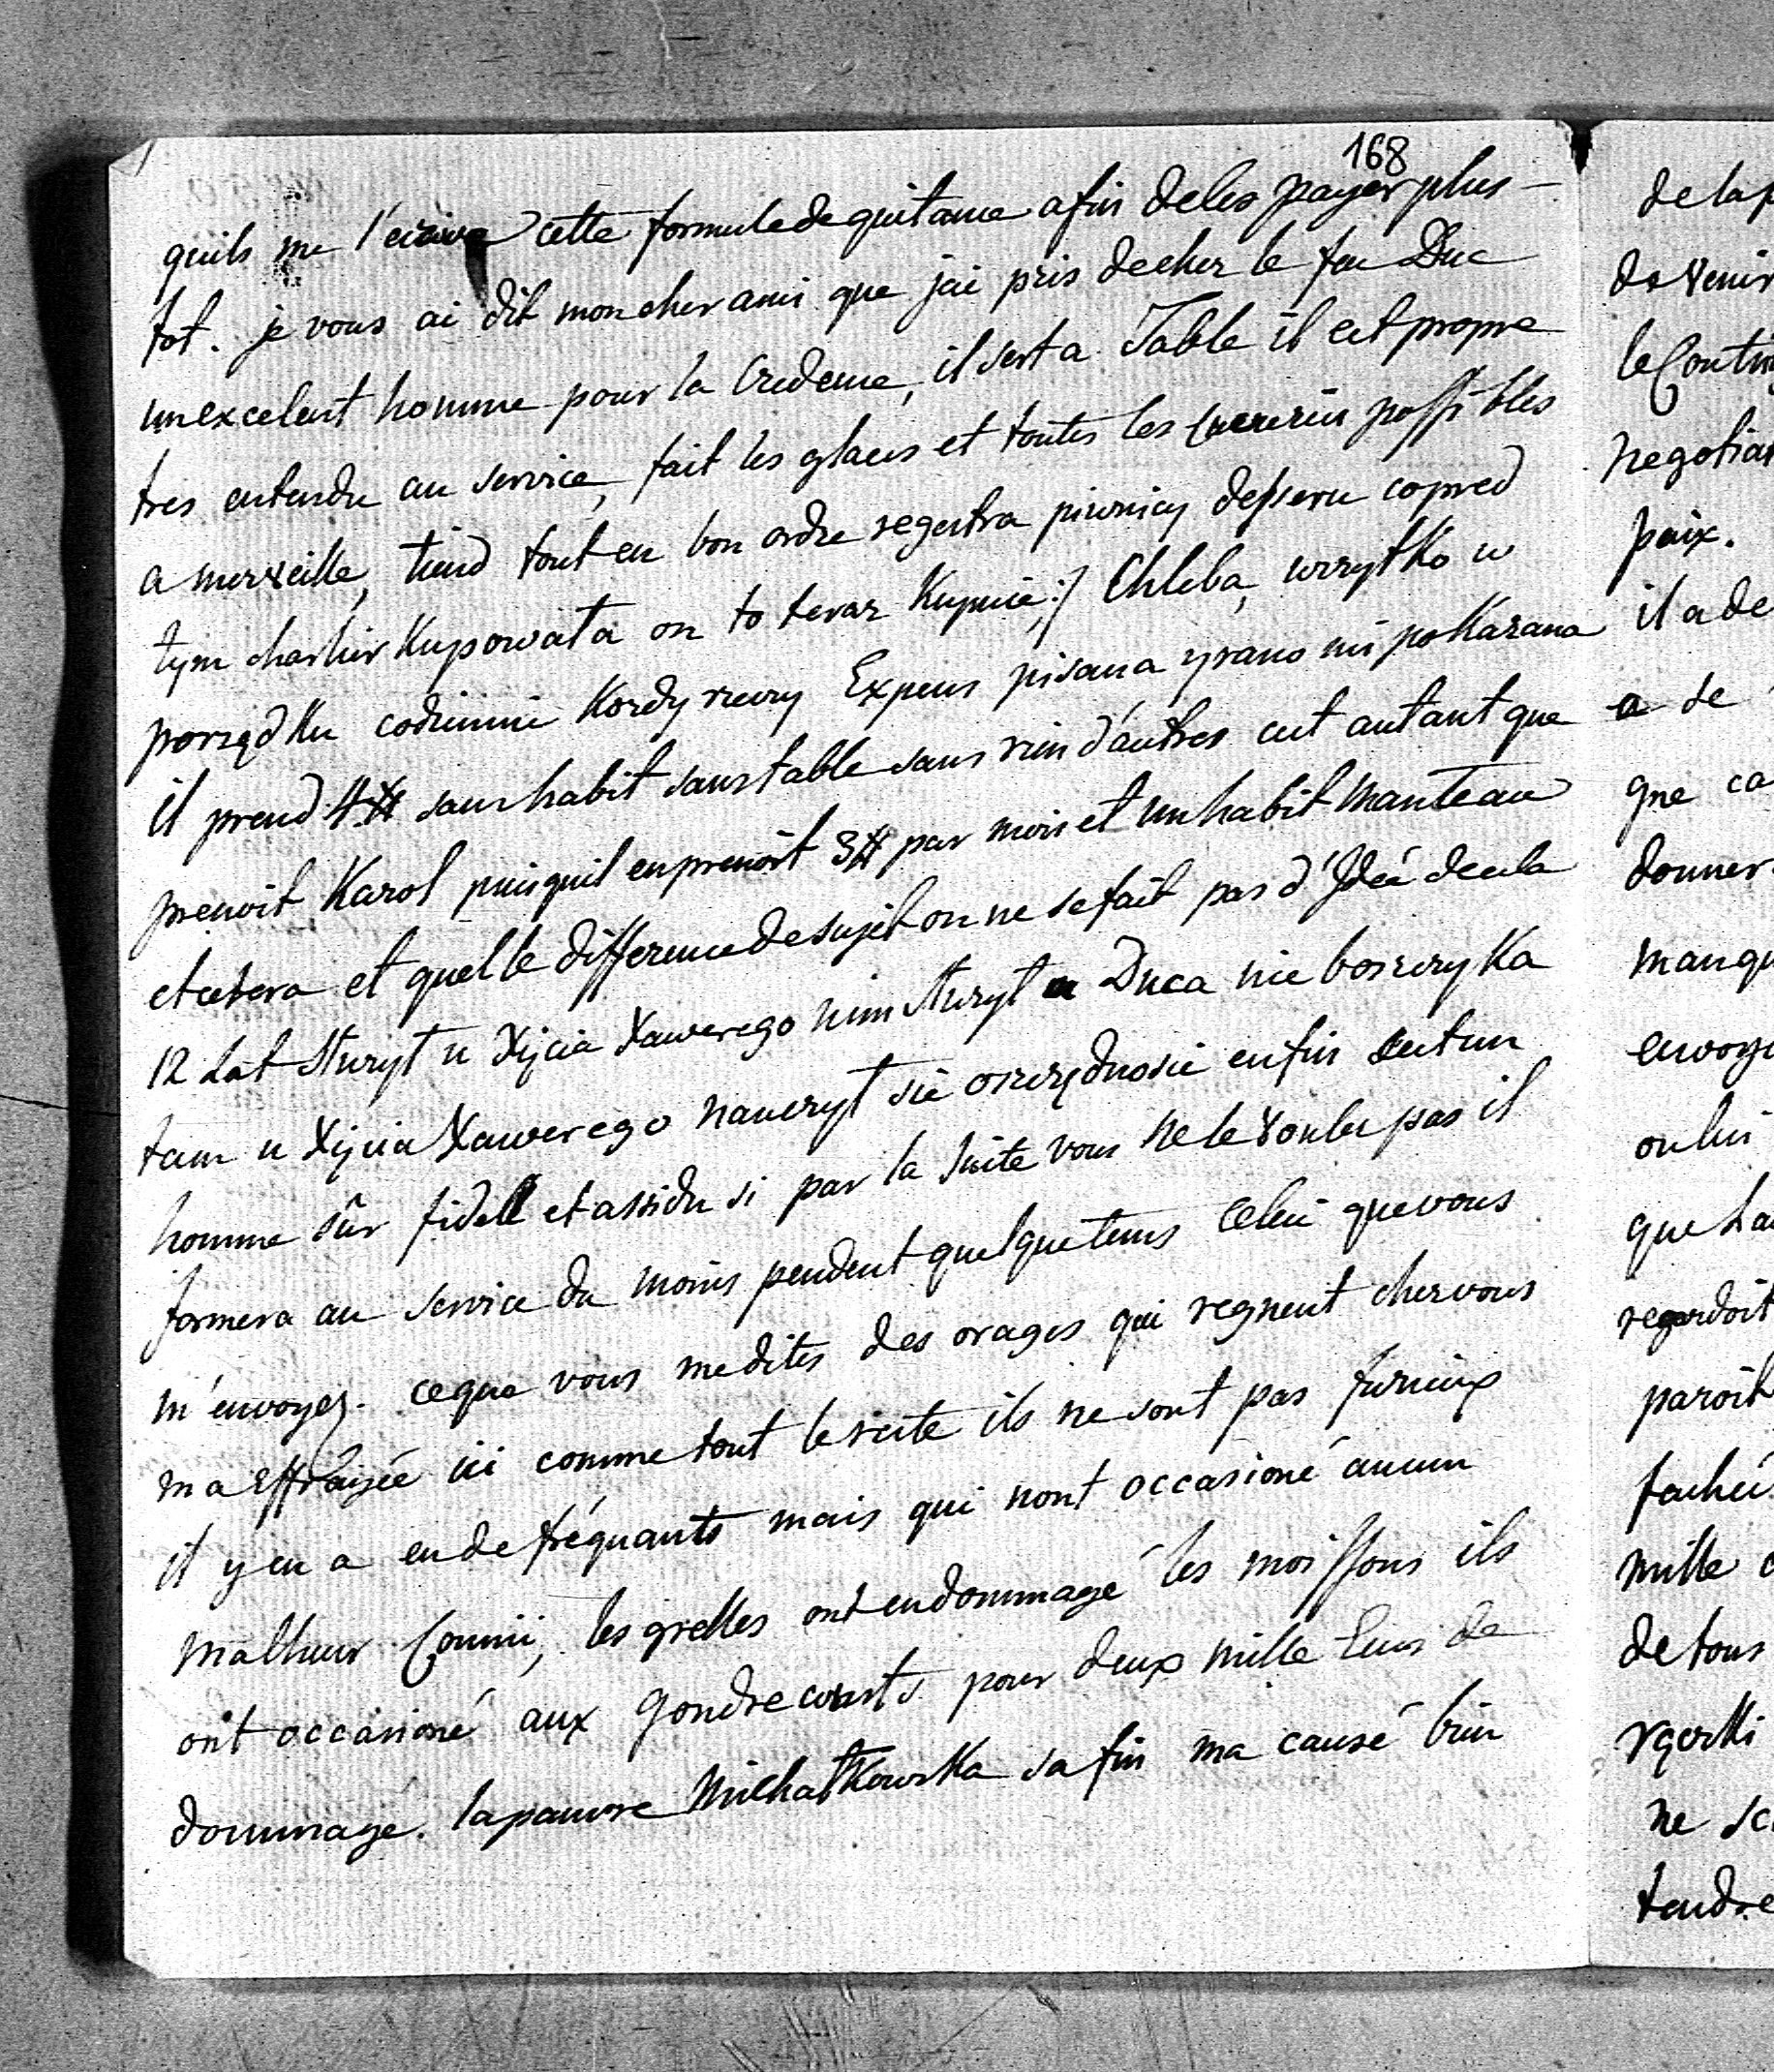 168
quils me l'ecrive cette formule de quitance afin de les payer plus-
tot. je vous ai dit mon cher ami que jai pris de chez le feu Duc
un excelent homme pour la Credence, il sert a Table il est propre
tres entendu au service, fait les glaces et toutes les possibles
a merveille, tiend tout en bon ordre regestra piwnicy desseru co pred
tym charlier Kupowała on to teraz Kupuie :/ Chleba, wszytko w
porządku codzienie Kordy rzeczy Expens pisana y rano mi poKazana
il prend 4 # sans habit sans table sans rien d'autres cest autant que
prenoit Karol puisquil en prenoit 3 # par mois et un habit manteau
et cetera et quelle difference de sujet on ne se fait pas d'Ideé de cela
12 Lat służył u Xięcia Xawerego nim służył u Duca nie bosczyka
tam u Xięcia Xawerego nauczył sie oszczędnosci enfin cest un
homme sûr fidell et assidu si par la suite vous ne le voulez pas il
formera au service du moins pendent quelque tems celui que vous
m'envoyez. ce que vous me dites des orages qui regnent chez vous
ma effraiyée ici comme tout le reste ils ne sont pas furieux
il y en a eu de fréquants mais qui nont occasioné aucun
malheur Connu, les grelles ont endommagé les moissons ils
ont occasioné aux Gondrecourts pour deux mille Ecus de
dommage. la pauvre MichałKowsKa sa fin ma causé bien
de la p
de venir
le Contin
negotiat
paix.
il a de
a de
que ca
donner
manqu
envoye
on lui
que La
regardoit
paroit
fachés
mille
de tous
ne sc
tendre